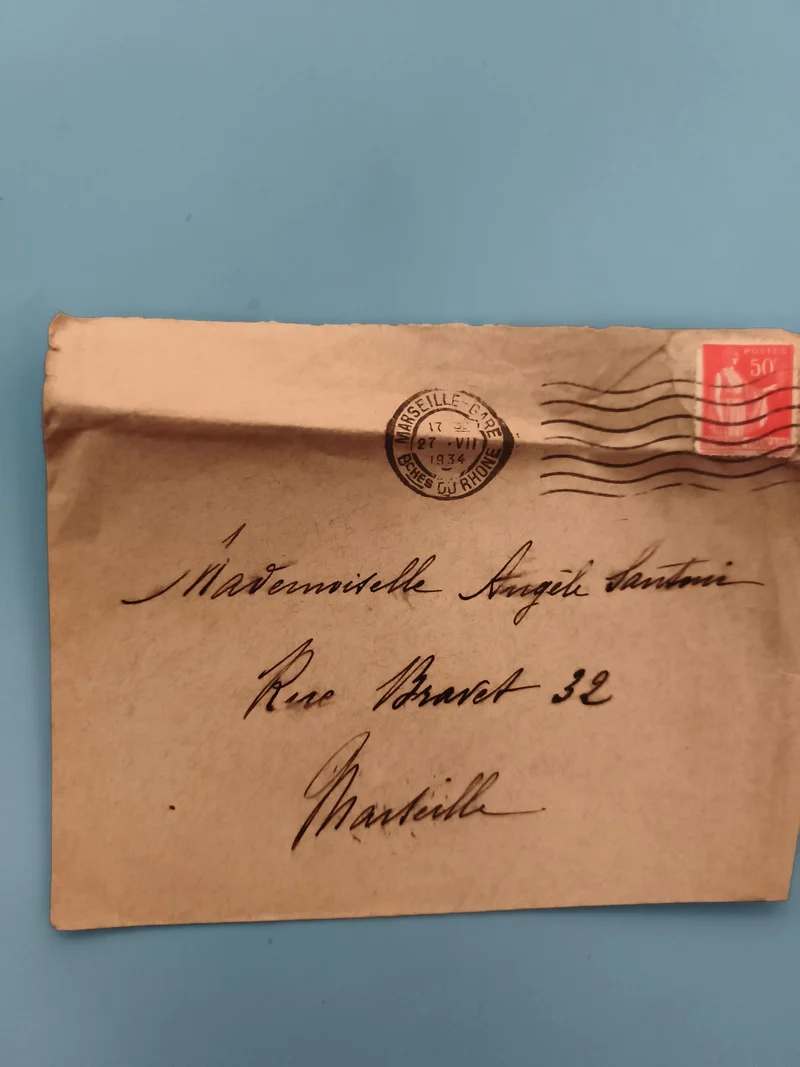 POSTES
50
MARSEILLE-GARE
17
27 -VII
1934
BCHES DU RHONE
Mademoiselle Angèle Santoni
Rue Bravet 32
Marseille